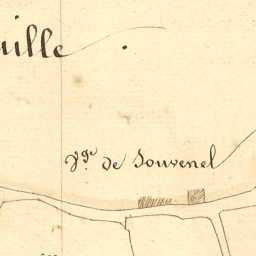 uille
Vge de Souvenel